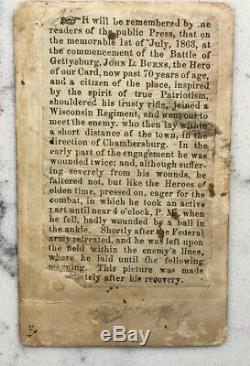 It will be remembered by
readers of the public Press, that on
the memorable 1st of July, 1863, at
the commencement of the Battle of
Gettysburg, JOHN L. BURNS, the Hero
of our Card, now past 70 years of age,
and a citizen of the place, inspired
by the spirit of true Patriotism,
shouldered his trusty rifle, joined a
Wisconsin Regiment, and went out to
meet the enemy, who then lay within
a short distance of the town, in the
direction of Chambersburg. In the
early part of the engagement he was
wounded twice; and, although suffer-
ing severely from his wounds, he
faltered not, but like the Heroes of
olden time, pressed on, eager for the
combat, in which he took an active
part until near 4 o'clock, P. M., when
he fell, badly wounded by a ball in
the ankle. Shortly after the Federal
army retreated, and he was left upon
the field within the enemy's lines,
where he laid until the following
This picture was made
after his recovery.